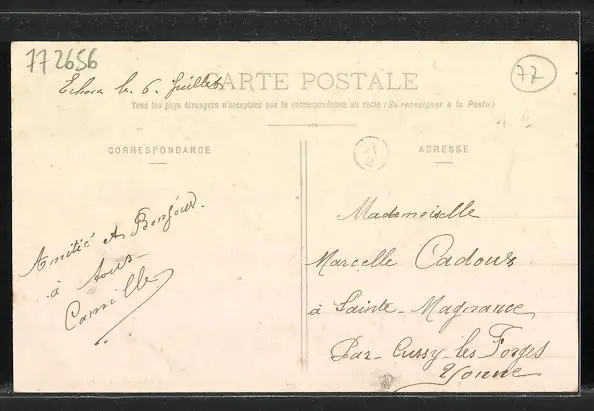 77 2656
Echou le 6 Juillet
CARTE POSTALE
77
Tous les pays étrangers n'acceptent pas la correspondance au recto (Se renseigner à la Poste)
CORRESPONDANCE
ADRESSE
Amitié et Bonjour.
à tous
Camille
Mademoiselle
Marcelle Cadoux
à Sainte-Magnance
Par-Cussy-les-Forges
Yonne